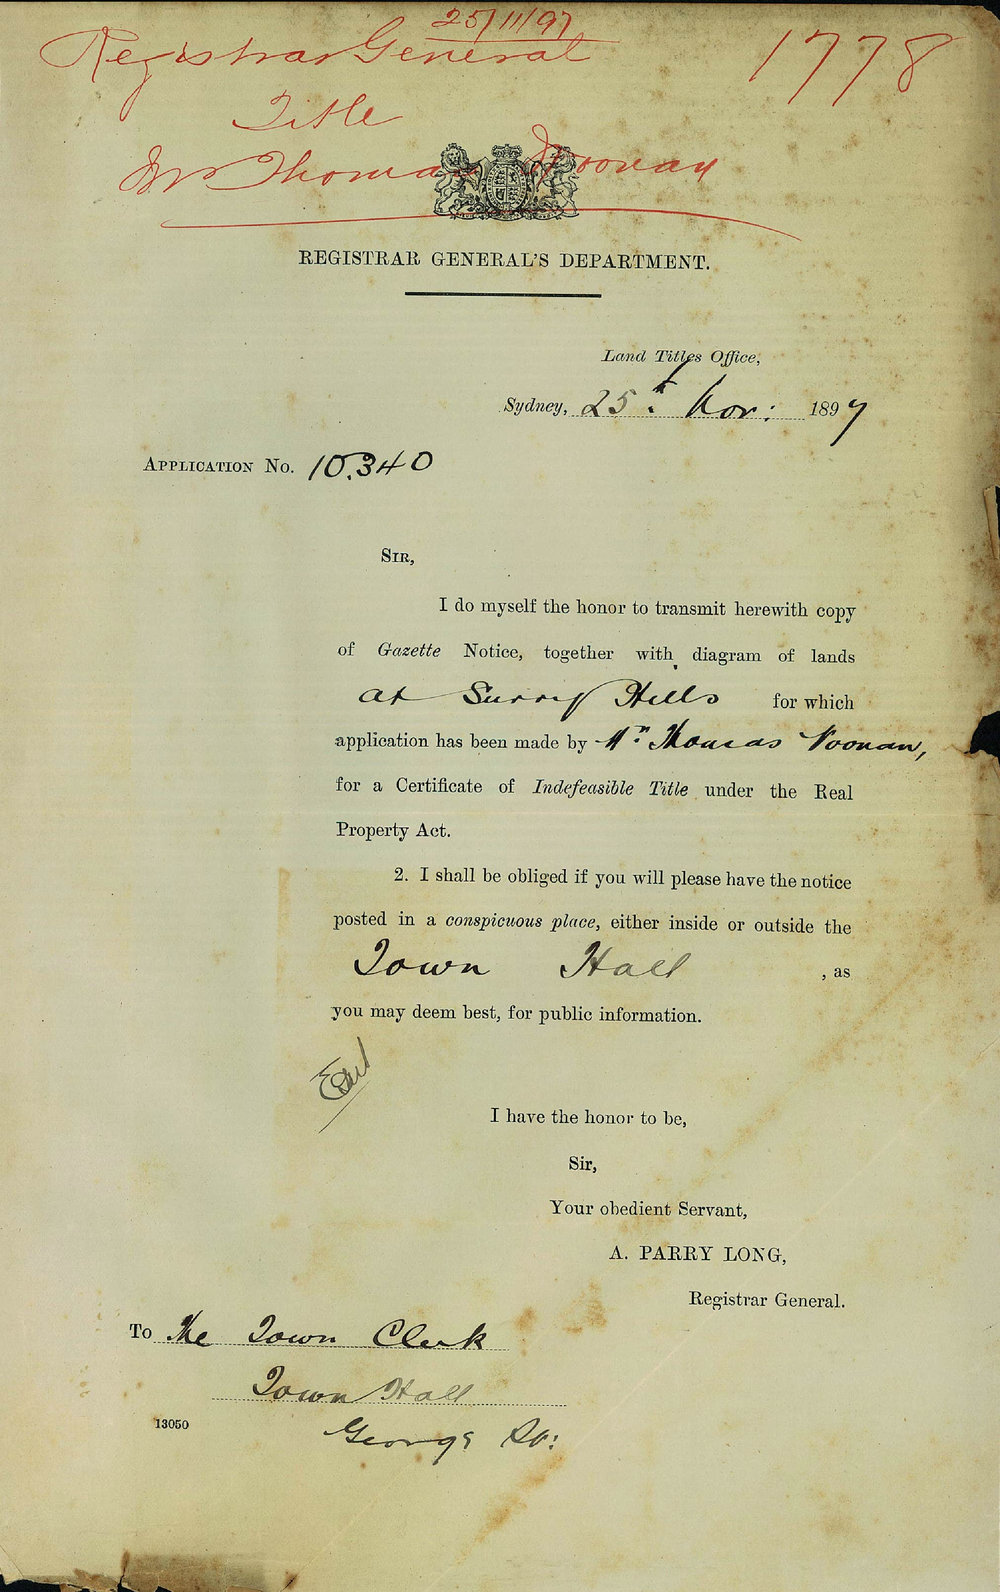 25/11/97
Registrar General 1778
Title
Mr Thomas Noonan
REGISTRAR GENERAL'S DEPARTMENT.
Land Titles Office,
Sydney, 25th Nov: 1897
APPLICATION No. 10.340
SIR,
I do myself the honor to transmit herewith copy
of Gazette Notice, together with diagram of lands
at Surry Hills for which
application has been made by Mr. Thomas Noonan,
for a Certificate of Indefeasible Title under the Real
Property Act.
2. I shall be obliged if you will please have the notice
posted in a conspicuous place, either inside or outside the
Town Hall , as
you may deem best, for public information.
I have the honor to be,
Sir,
Your obedient Servant,
A. PARRY LONG,
Registrar General.
To The Town Clerk
Town Hall
13050
George St: